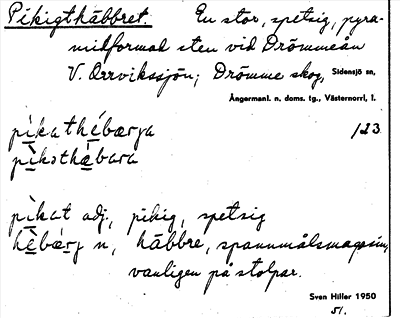 Pikigthäbbret. En stor, spetsig, pyra-
midformad sten vid Drömmeån
V. Orrvikssjön; Drömme skog, Sidensjö sn,
Ångermanl. n. doms. tg., Västernorrl. l.
pìkathébærja 123
pìksthæ̀bara
pìkat adj., pikig, spetsig
hèbærj n, häbbre, spannmålsmagasin,
vanligen på stolpar.
Sven Hiller 1950
51.